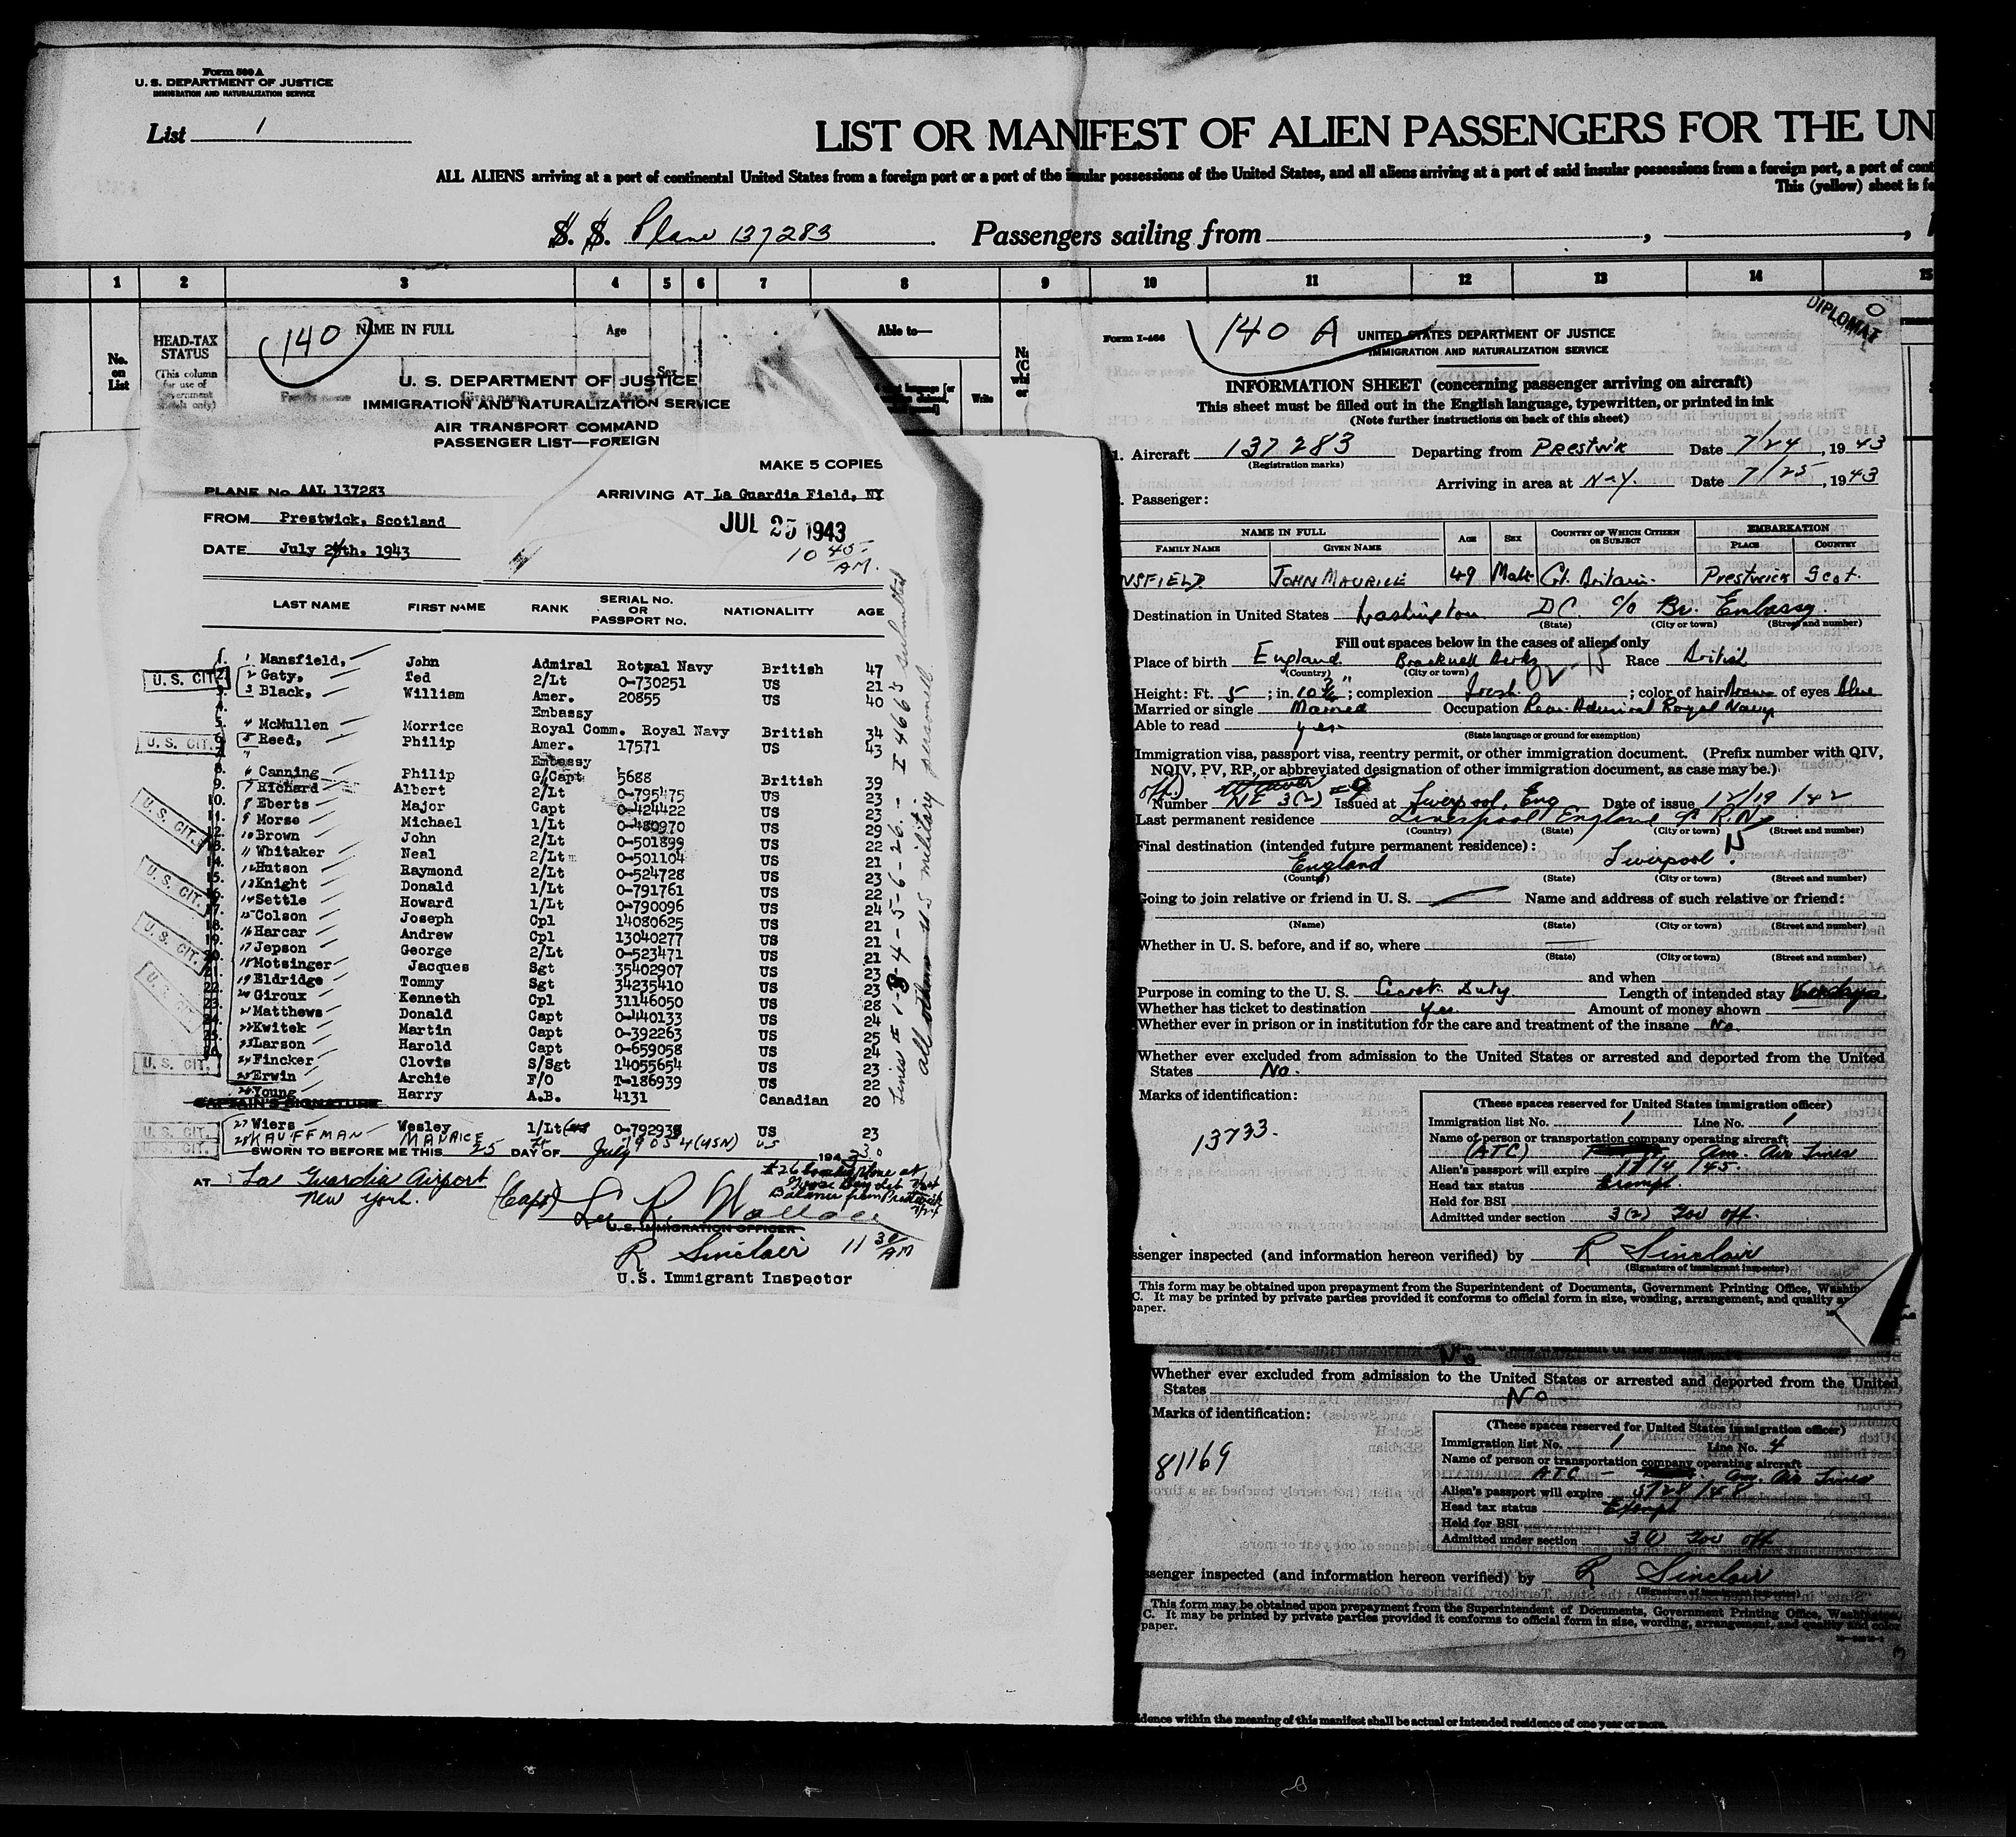 Form 500 A
U. S. DEPARTMENT OF JUSTICE
IMMIGRATION AND NATURALIZATION SERVICE
List 1
LIST OR MANIFEST OF ALIEN PASSENGERS FOR THE UN
ALL ALIENS arriving at a port of continental United States from a foreign port or a port of the insular possessions of the United States, and all aliens arriving at a port of said insular possessions from a foreign port, a port of cont
This (yellow) sheet is fo
S. S. Plane 137283. Passengers sailing from
1 2 3 4 5 6 7 8 9 10 11 12 13 14 15
No. on List
HEAD-TAX STATUS
(This column for use of Government officials only)
140
NAME IN FULL
Family name Given name
Age
Sex
Able to—
Write
U. S. DEPARTMENT OF JUSTICE
IMMIGRATION AND NATURALIZATION SERVICE
AIR TRANSPORT COMMAND
PASSENGER LIST—FOREIGN
MAKE 5 COPIES
PLANE No. AAL 137283
ARRIVING AT La Guardia Field, NY
FROM Prestwick, Scotland
JUL 25 1943
10 45 AM.
DATE July 24th, 1943
LAST NAME FIRST NAME RANK SERIAL No. OR PASSPORT No. NATIONALITY AGE
1 Mansfield, John Admiral Royal Navy British 47
2 Gaty, Ted 2/Lt O-730251 US 21
3 Black, William Amer. Embassy 20855 US 40
4 McMullen Morrice Royal Comm. Royal Navy British 34
5 Reed, Philip Amer. Embassy 17571 US 43
6 Canning Philip G/Capt 5688 British 39
7 Richard Albert 2/Lt O-795475 US 23
8 Eberts Major Capt O-424422 US 23
9 Morse Michael 1/Lt O-480970 US 29
10 Brown John 2/Lt O-501899 US 22
11 Whitaker Neal 2/Lt O-501104 US 21
12 Hutson Raymond 2/Lt O-524728 US 23
13 Knight Donald 1/Lt O-791761 US 22
14 Settle Howard 1/Lt O-790096 US 24
15 Colson Joseph Cpl 14080625 US 21
16 Harcar Andrew Cpl 13040277 US 21
17 Jepson George 2/Lt O-523471 US 21
18 Motsinger Jacques Sgt 35402907 US 23
19 Eldridge Tommy Sgt 34235410 US 23
20 Giroux Kenneth Cpl 31146050 US 28
21 Matthews Donald Capt O-440133 US 24
22 Kwitek Martin Capt O-392263 US 25
23 Larson Harold Capt O-659058 US 24
24 Fincker Clovis S/Sgt 14055654 US 23
25 Erwin Archie F/O T-186939 US 22
26 Young Harry A.B. 4131 Canadian 20
CAPTAIN'S SIGNATURE
27 Wiers Wesley 1/Lt O-792938 US 23
28 KAUFFMAN MAURICE 79054 (USN) US 30
U. S. CIT.
U. S. CIT.
U. S. CIT.
U. S. CIT.
U. S. CIT.
U. S. CIT.
U. S. CIT.
U. S. CIT.
U. S. CIT.
Lines # 1-3-4-5-6-26.- I 466's submitted
all others US military personnel
SWORN TO BEFORE ME THIS 25 DAY OF July 1943
AT La Guardia Airport
New York.
#26 boarded plane at
Goose Bay Lab.
Balance from Prestwick
7/24
(Capt) Lee R. Wallace
U.S. IMMIGRATION OFFICER
R Sinclair 11 30 AM
U.S. Immigrant Inspector
DIPLOMAT
Form I-466
140 A
UNITED STATES DEPARTMENT OF JUSTICE
IMMIGRATION AND NATURALIZATION SERVICE
INFORMATION SHEET (concerning passenger arriving on aircraft)
This sheet must be filled out in the English language, typewritten, or printed in ink
(Note further instructions on back of this sheet)
1. Aircraft 137283 Departing from Prestwk Date 7/24, 1943
(Registration marks)
Arriving in area at N-Y. Date 7/25, 1943
. Passenger:
NAME IN FULL AGE SEX COUNTRY OF WHICH CITIZEN OR SUBJECT EMBARKATION
FAMILY NAME GIVEN NAME PLACE COUNTRY
NSFIELD JOHN MAURICE 49 Male Gt. Britain Prestwick Scot.
Destination in United States Washington D.C. c/o Br. Embassy.
(State) (City or town) (Street and number)
Fill out spaces below in the cases of aliens only
Place of birth England Bracknell Berks Race British
(Country) (City or town)
Height: Ft. 5; in. 10½"; complexion fresh; color of hair Brown of eyes blue
Married or single Married Occupation Rear Admiral Royal Navy
Able to read yes
(State language or ground for exemption)
Immigration visa, passport visa, reentry permit, or other immigration document. (Prefix number with QIV,
NQIV, PV, RP, or abbreviated designation of other immigration document, as case may be.)
Number NE 3(2) Issued at Liverpool, Eng Date of issue 12/19/42
Last permanent residence Liverpool England
(Country) (State) (City or town) (Street and number)
Final destination (intended future permanent residence):
England Liverpool.
(Country) (State) (City or town) (Street and number)
Going to join relative or friend in U. S. Name and address of such relative or friend:
(Name) (State) (City or town) (Street and number)
Whether in U. S. before, and if so, where
(State) (City or town) (Street and number)
and when
Purpose in coming to the U. S. Secret Duty Length of intended stay
Whether has ticket to destination yes. Amount of money shown
Whether ever in prison or in institution for the care and treatment of the insane No
Whether ever excluded from admission to the United States or arrested and deported from the United
States No.
Marks of identification:
13733.
(These spaces reserved for United States immigration officer)
Immigration list No. 1 Line No. 1
Name of person or transportation company operating aircraft
(ATC) Am. Air Lines
Alien's passport will expire 11/4/45.
Head tax status Exempt.
Held for BSI
Admitted under section 3(2) Gov off.
ssenger inspected (and information hereon verified) by R Sinclair
(Signature of immigrant inspector)
This form may be obtained upon prepayment from the Superintendent of Documents, Government Printing Office, Washin
C. It may be printed by private parties provided it conforms to official form in size, wording, arrangement, and quality a
paper.
No
Whether ever excluded from admission to the United States or arrested and deported from the United
States No
Marks of identification:
81169
(These spaces reserved for United States immigration officer)
Immigration list No. 1 Line No. 4
Name of person or transportation company operating aircraft
ATC - Am. Air Lines
Alien's passport will expire 5/28/48
Head tax status Exempt
Held for BSI
Admitted under section 3(1) Gov off
ssenger inspected (and information hereon verified) by R Sinclair
(Signature of immigrant inspector)
This form may be obtained upon prepayment from the Superintendent of Documents, Government Printing Office, Washington,
C. It may be printed by private parties provided it conforms to official form in size, wording, arrangement, and quality and color
paper.
idence within the meaning of this manifest shall be actual or intended residence of one year or more.